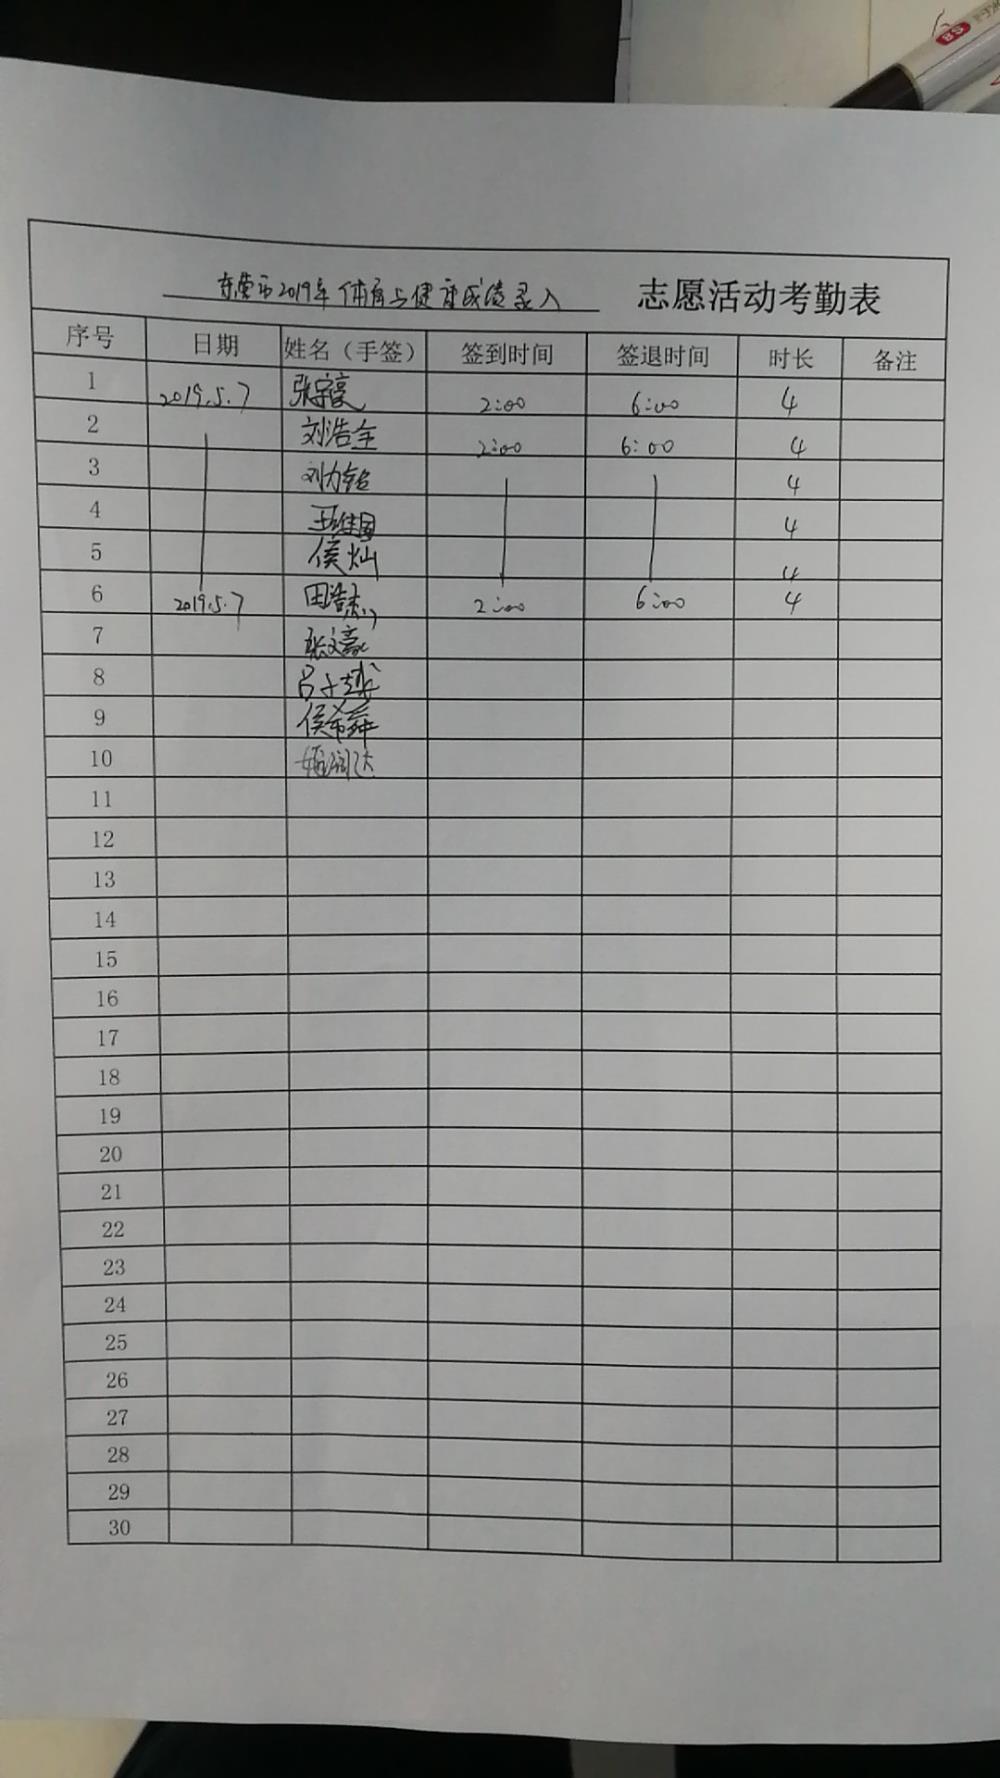 东营市2019年体育与健康成绩录入 志愿活动考勤表
序号 日期 姓名（手签） 签到时间 签退时间 时长 备注
1 2019.5.7 张宇豪 2:00 6:00 4
2 刘浩全 2:00 6:00 4
3 4
4 4
5 侯灿 4
6 2019.5.7 田浩杰 2:00 6:00 4
7 张文豪
8 吕子越
9 侯希舜
10 姬润达
11
12
13
14
15
16
17
18
19
20
21
22
23
24
25
26
27
28
29
30